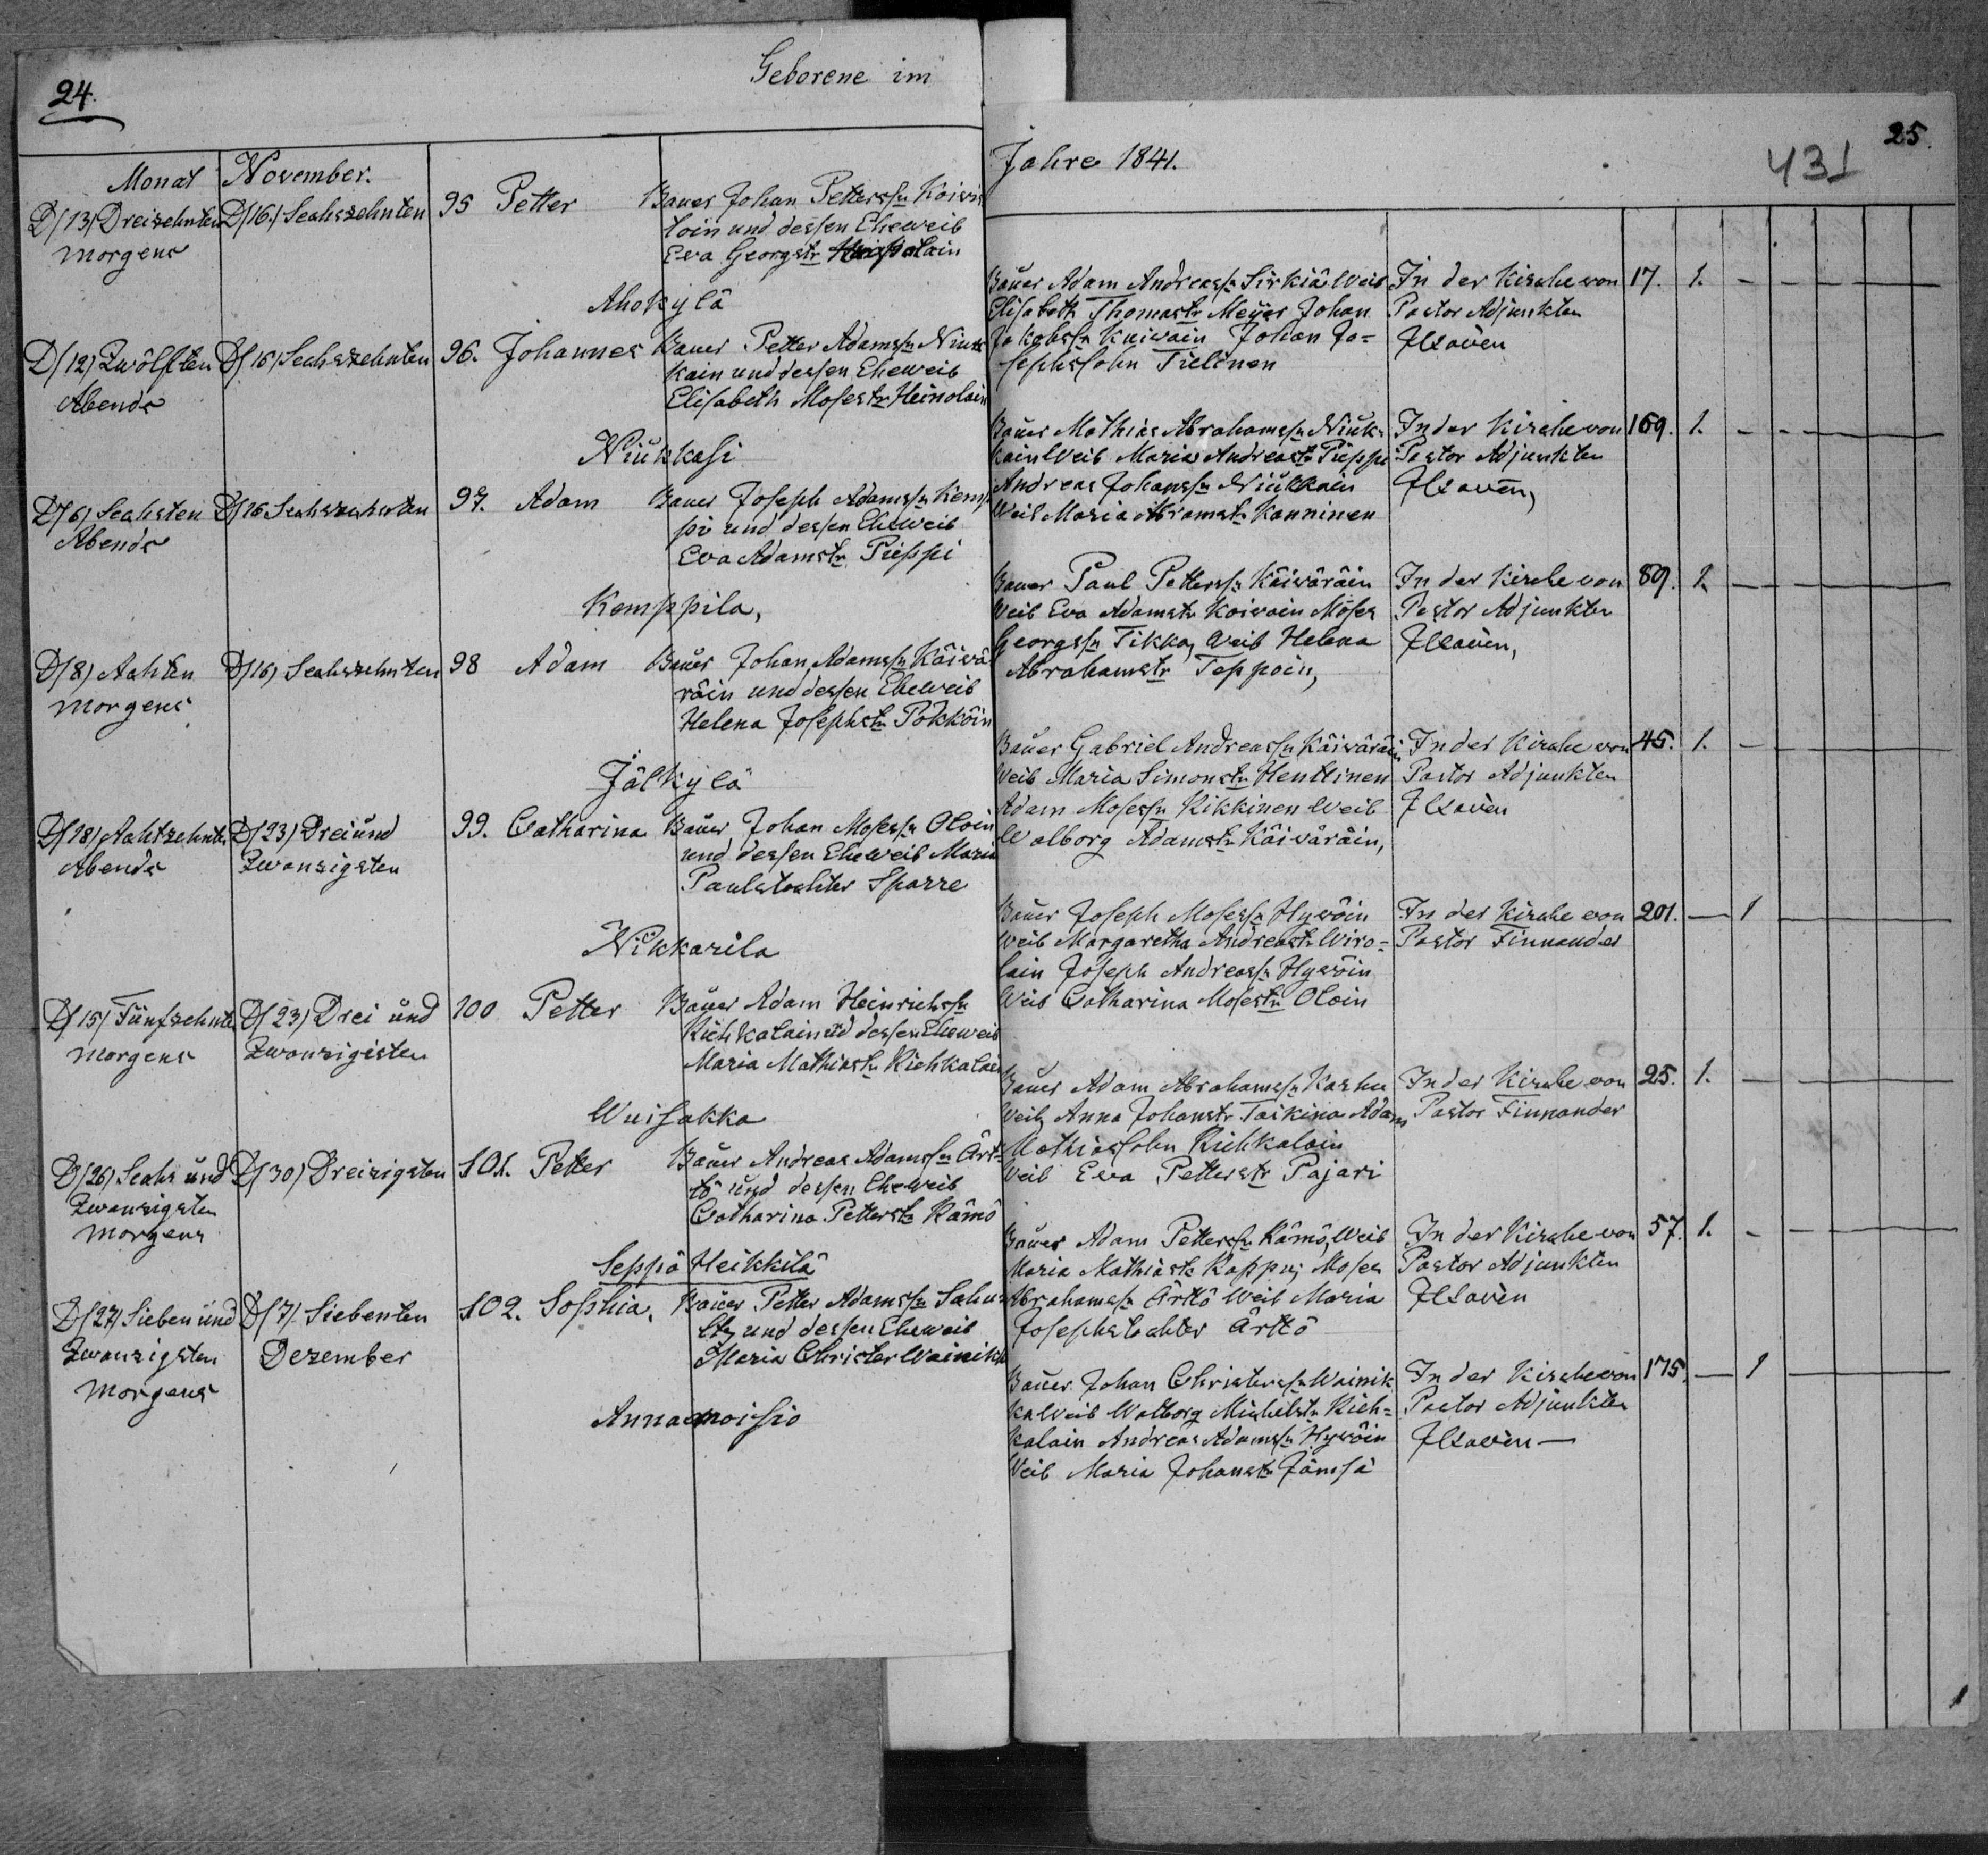 24.
Geborene im
Monat November.
D/13/ Dreizehnten D/16./ Sechszehnten 95 Petter Bauer Johan Petterssn Koivis
morgens loin und dessen Eheweib
Eva Georgstr
Ahokylä
D/12/ Zwölften D/16/ Sechszehnten 96. Johannes Bauer Petter Adamssn Niuk
Abends kain und dessen Eheweib
Elisabeth Mosestr Heinolain
Niukkasi
D/6/ Sechsten D/16 Sechszehnten 97. Adam Bauer Joseph Adamssn Kemp
Abends pi und dessen Eheweib
Eva Adamstr Pieppi
Kemppila,
D/8/ Achten D/16/ Sechszehnten 98 Adam Bauer Johan Adamssn Käivä
morgens räin und dessen Eheweib
Helena Josephstr Pokköin
Jälkylä
D/18/ Achtzehnten D/23/ Drei und 99. Catharina Bauer Johan Mosessn Oloin
Abends Zwanzigsten und dessen Eheweib Maria
Paulstochter Sparre
Nikkarila
D/15/ Fünfzehnten D/23/ Drei und 100 Petter Bauer Adam Heinrichssn
morgens Zwanzigisten Kichkalain und dessen Eheweib
Maria Mathiastr Kichkalain
Wuisakka
D/26/ Sechs und D/30/ Dreizigsten 101. Petter Bauer Andreas Adamssn Ärt=
Zwanzigsten tö und dessen Eheweib
morgens Catharina Petterstr Rämö
Seppä Heikkilä
D/27/ Sieben und D/7/ Siebenten 102. Sophia. Bauer Petter Adamssn
Zwanzigsten Dezember und dessen Eheweib
morgens Maria Christer Wainikk
Annanoisio
25.
431
Jahre 1841.
Bauer Adam Andreassn Sirkiä Weib In der Kirche von 17. 1. - - - - -
Elisabeth Thomastr Meyer Johan Pastor Adjunkten
Jakobssn Kuivain Johan Jo= Ilsaven
sephssohn Tielinen
Bauer Mathias Abrahamssn Niuk= In der Kirche von 169. 1. - - - - -
kain Weib Maria Andreastr Pieppi Pastor Adjunkten
Andreas Johanssn Niukkain Ilsaven,
Weib Maria Abramstr Kanninen
Bauer Paul Petterssn Käiväräin In der Kirche von 89. 1. - - - - -
Weib Eva Adamstr Koivain Moses Pastor Adjunkten
Georgssn Tikka, Weib Helena Ilsaven,
Abrahamstr Teppoin,
Bauer Gabriel Andreassn Käiväräin In der Kirche von 45. 1. - - - - -
Weib Maria Simonstr Henttinen Pastor Adjunkten
Adam Mosessn Kikkinen Weib Ilsaven
Walborg Adamstr Käiväräin,
Bauer Joseph Mosessn Hyvöin In der Kirche von 201. - 1 - - - -
Weib Margaretha Andreastr Wiro= Pastor Finnander
lain Joseph Andreassn Hyvöin
Weib Catharina Mosestr Oloin
Bauer Adam Abrahamssn Karhu In der Kirche von 25. 1. - - - - -
Weib Anna Johanstr Taskina Adam Pastor Finnander
Mathiassohn Kichkalain
Weib Eva Petterstr Pajari
Bauer Adam Petterssn Rämö, Weib In der Kirche von 57. 1. - - - - -
Maria Mathiastr Moses Pastor Adjunkten
Abrahamssn Ärttö Weib Maria Ilsaven
Josephstochter Ärttö
Bauer Johan Christerssn Wainik In der Kirche von 175. - 1 - - - -
ka Weib Walborg Michelstr Kich= Pastor Adjunkten
kalain Andreas Adamssn Hyvöin Ilsaven -
Weib Maria Johanstr Jämsä